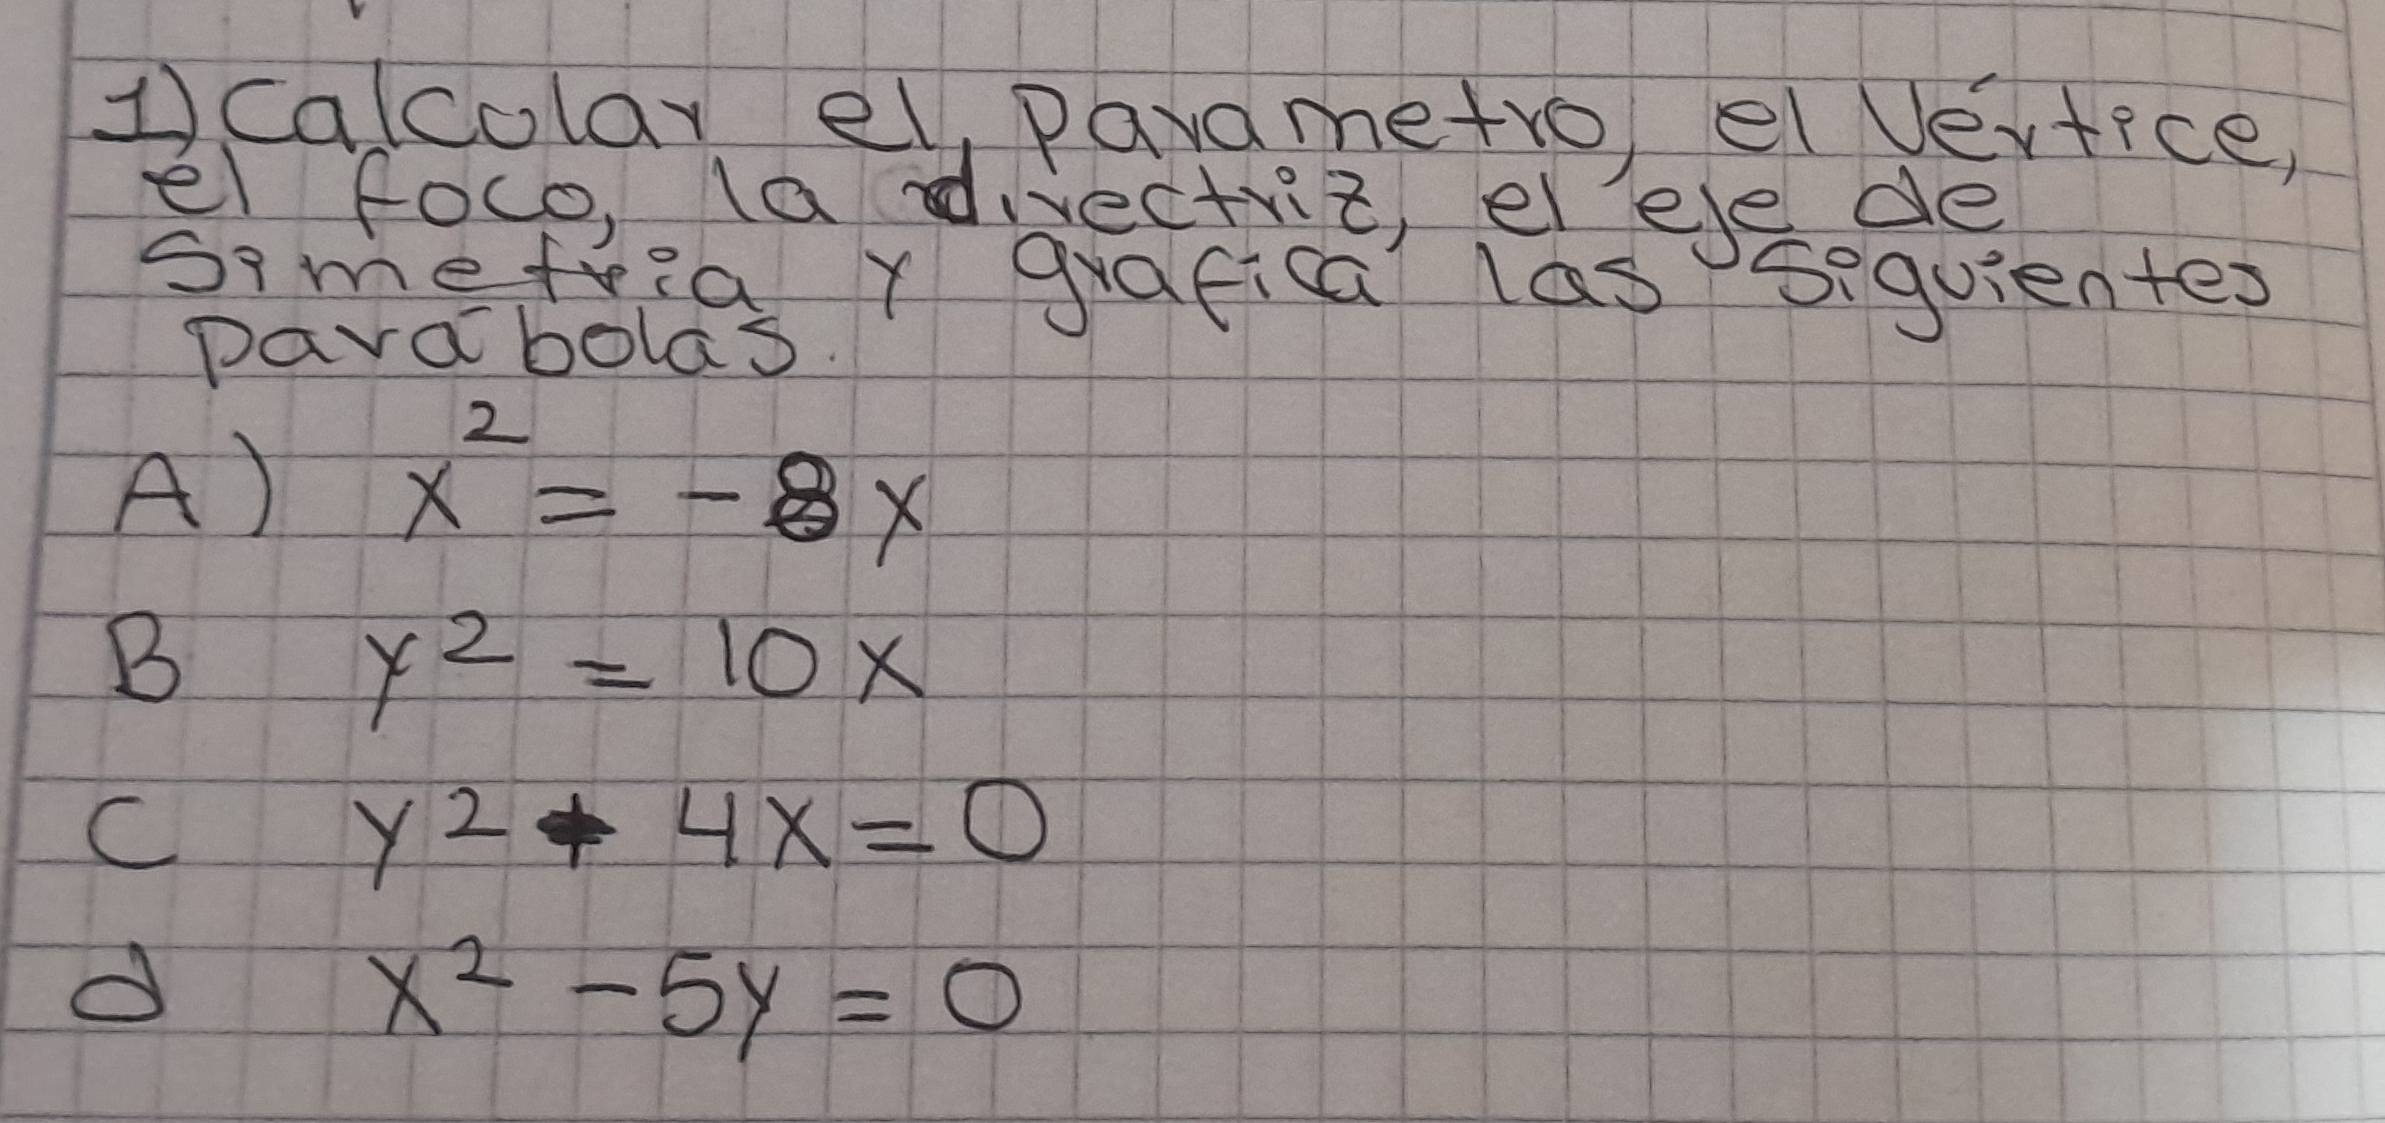 1) Calcular el parametro, el Vértice,
el foco, la directriz, el eje de
Simetria y grafica las siguientes
parábolas.
A) x² = -8y
B y² = 10x
C y² + 4x = 0
d x² - 5y = 0